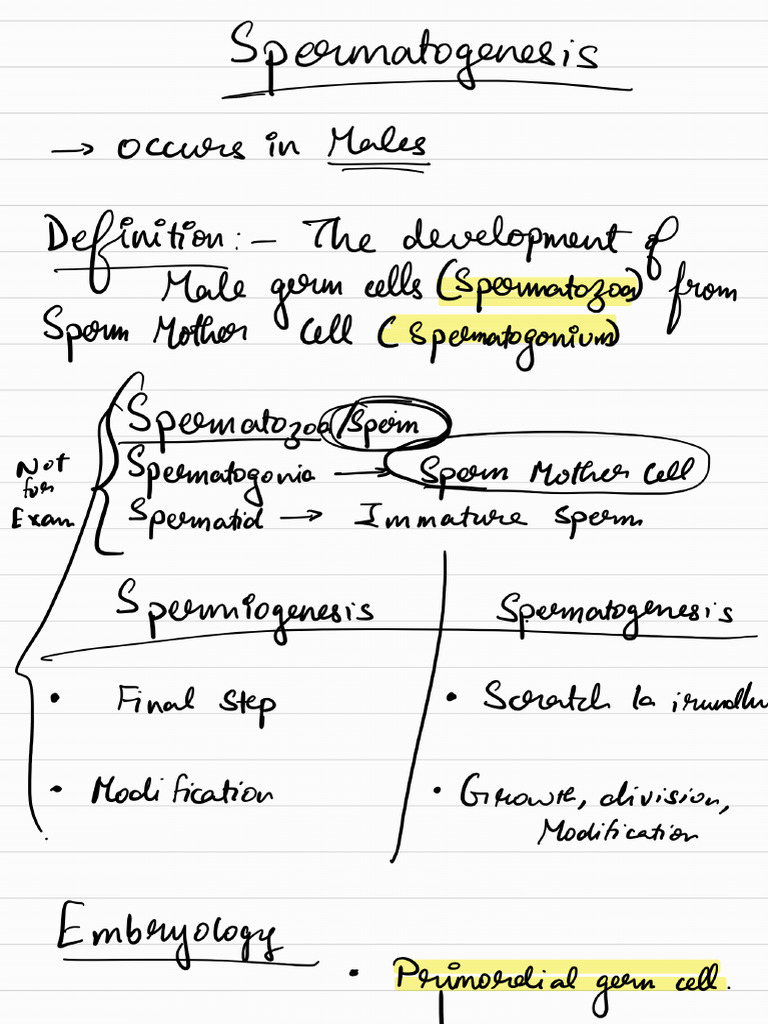 Spermatogenesis
→ occurs in Males
Definition :- The development of
Male germ cells (Spermatozoa) from
Sperm Mother cell (Spermatogonium)
Spermatozoa/Sperm
Spermatogonia → Sperm Mother Cell
Spermatid → Immature sperm
Not
for
Exam
Spermiogenesis Spermatogenesis
• Final step • Scratch la irundhu
• Modification • Growth, division,
Modification
Embryology
• Primordial germ cell.